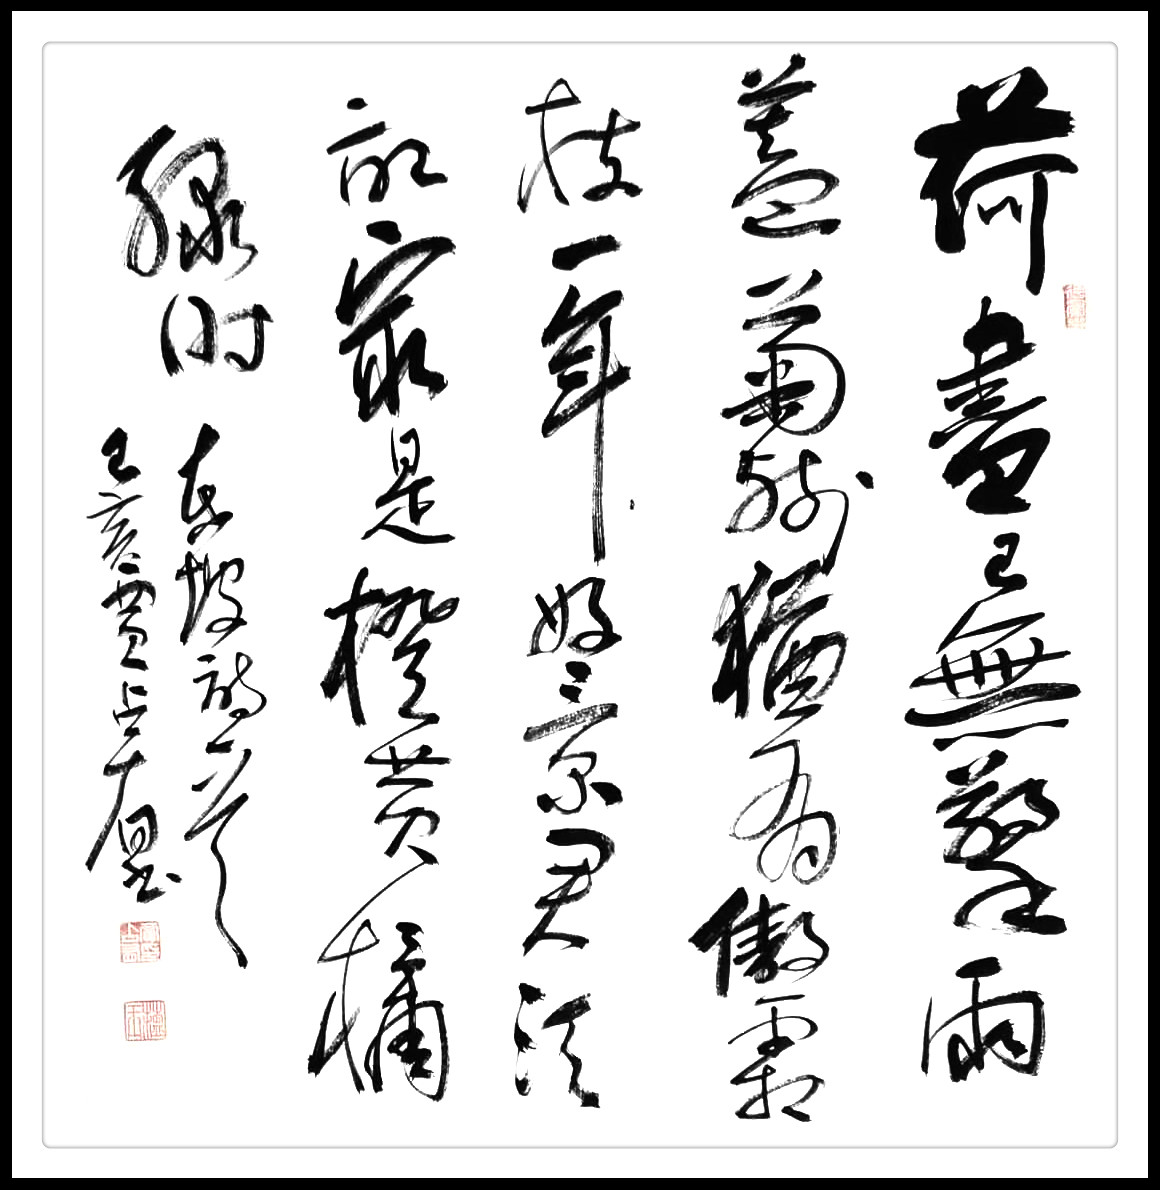 荷盡已無擎雨
蓋菊殘猶有傲霜
枝一年好景君須
記最是橙黄橘
綠時
東坡詩一首
己亥賈占